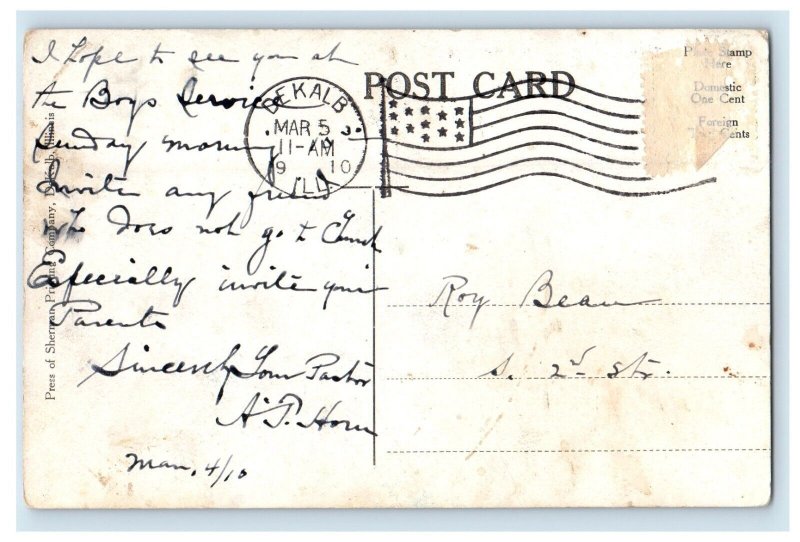 I hope to see you at
the Boys Service
Sunday morning
Invite any friend
who does not go to Church
Especially invite your
Parents
Sincerely Your Pastor
A. P. Horn
Mar, 4/10
Press of Sherman Printing Company, DeKalb, Illinois
DEKALB
MAR 5
11-AM
1910
ILL.
POST CARD
Place Stamp
Here
Domestic
One Cent
Foreign
Two Cents
Roy Bean
S. 2nd Str.